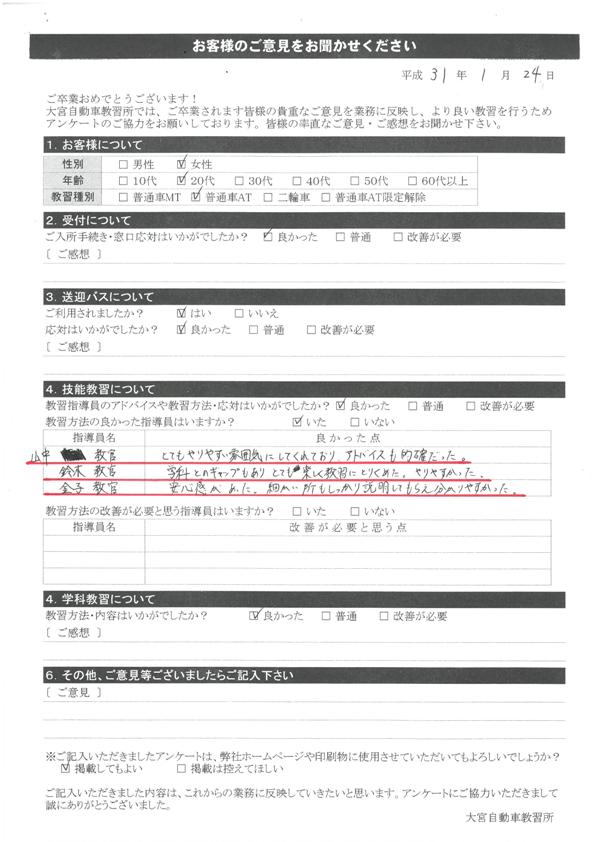 お客様のご意見をお聞かせください
平成 31 年 1 月 24 日
ご卒業おめでとうございます！
大宮自動車教習所では、ご卒業されます皆様の貴重なご意見を業務に反映し、より良い教習を行うため
アンケートのご協力をお願いしております。皆様の率直なご意見・ご感想をお聞かせ下さい。
1. お客様について
性別 □男性 ☑女性
年齢 □10代 ☑20代 □30代 □40代 □50代 □60代以上
教習種別 □普通車MT ☑普通車AT □二輪車 □普通車AT限定解除
2. 受付について
ご入所手続き・窓口応対はいかがでしたか？ ☑良かった □普通 □改善が必要
［ ご感想 ］
3. 送迎バスについて
ご利用されましたか？ ☑はい □いいえ
応対はいかがでしたか？ ☑良かった □普通 □改善が必要
［ ご感想 ］
4. 技能教習について
教習指導員のアドバイスや教習方法・応対はいかがでしたか？ ☑良かった □普通 □改善が必要
教習方法の良かった指導員はいますか？ ☑いた □いない
指導員名 良かった点
山中 教官 とてもやりやすい雰囲気にしてくれており、アドバイスも的確だった。
鈴木 教官 学科とのギャップもあり とても楽しく教習にとりくめた。やりやすかった。
金子 教官 安心感があった。細かい所もしっかり説明してもらえ分かりやすかった。
教習方法の改善が必要と思う指導員はいますか？ □いた □いない
指導員名 改善が必要と思う点
4. 学科教習について
教習方法・内容はいかがでしたか？ ☑良かった □普通 □改善が必要
［ ご感想 ］
6. その他、ご意見等ございましたらご記入下さい
［ ご意見 ］
※ご記入いただきましたアンケートは、弊社ホームページや印刷物に使用させていただいてもよろしいでしょうか？
☑掲載してもよい □掲載は控えてほしい
ご記入いただきました内容は、これからの業務に反映していきたいと思います。アンケートにご協力いただきまして
誠にありがとうございました。
大宮自動車教習所